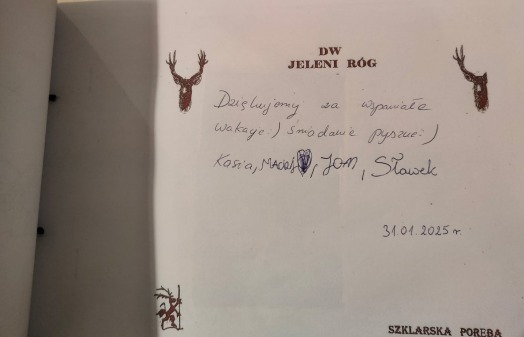 DW
JELENI RÓG
Dziękujemy za wspaniałe
wakacje:) śniadanie pyszne:)
Kasia, MACIEJ, JAN, Sławek
31.01.2025 r.
SZKLARSKA PORĘBA